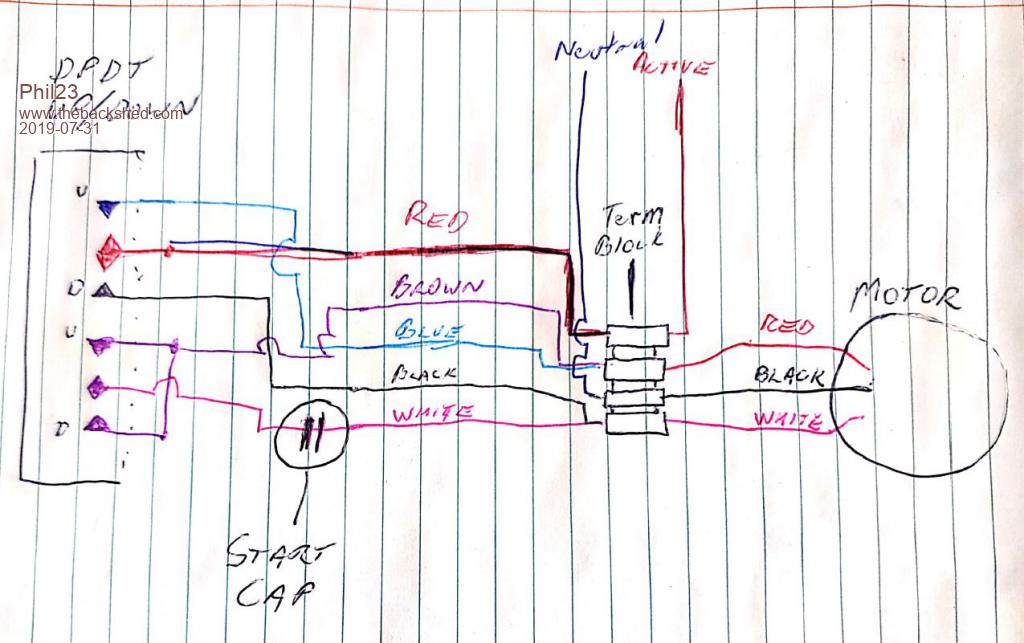 DPDT
Phil23
www.thebackshed.com
2019-07-31
U
D
U
D
RED
BROWN
BLUE
BLACK
WHITE
START
CAP
Neutral
ACTIVE
Term
Block
RED
BLACK
WHITE
MOTOR